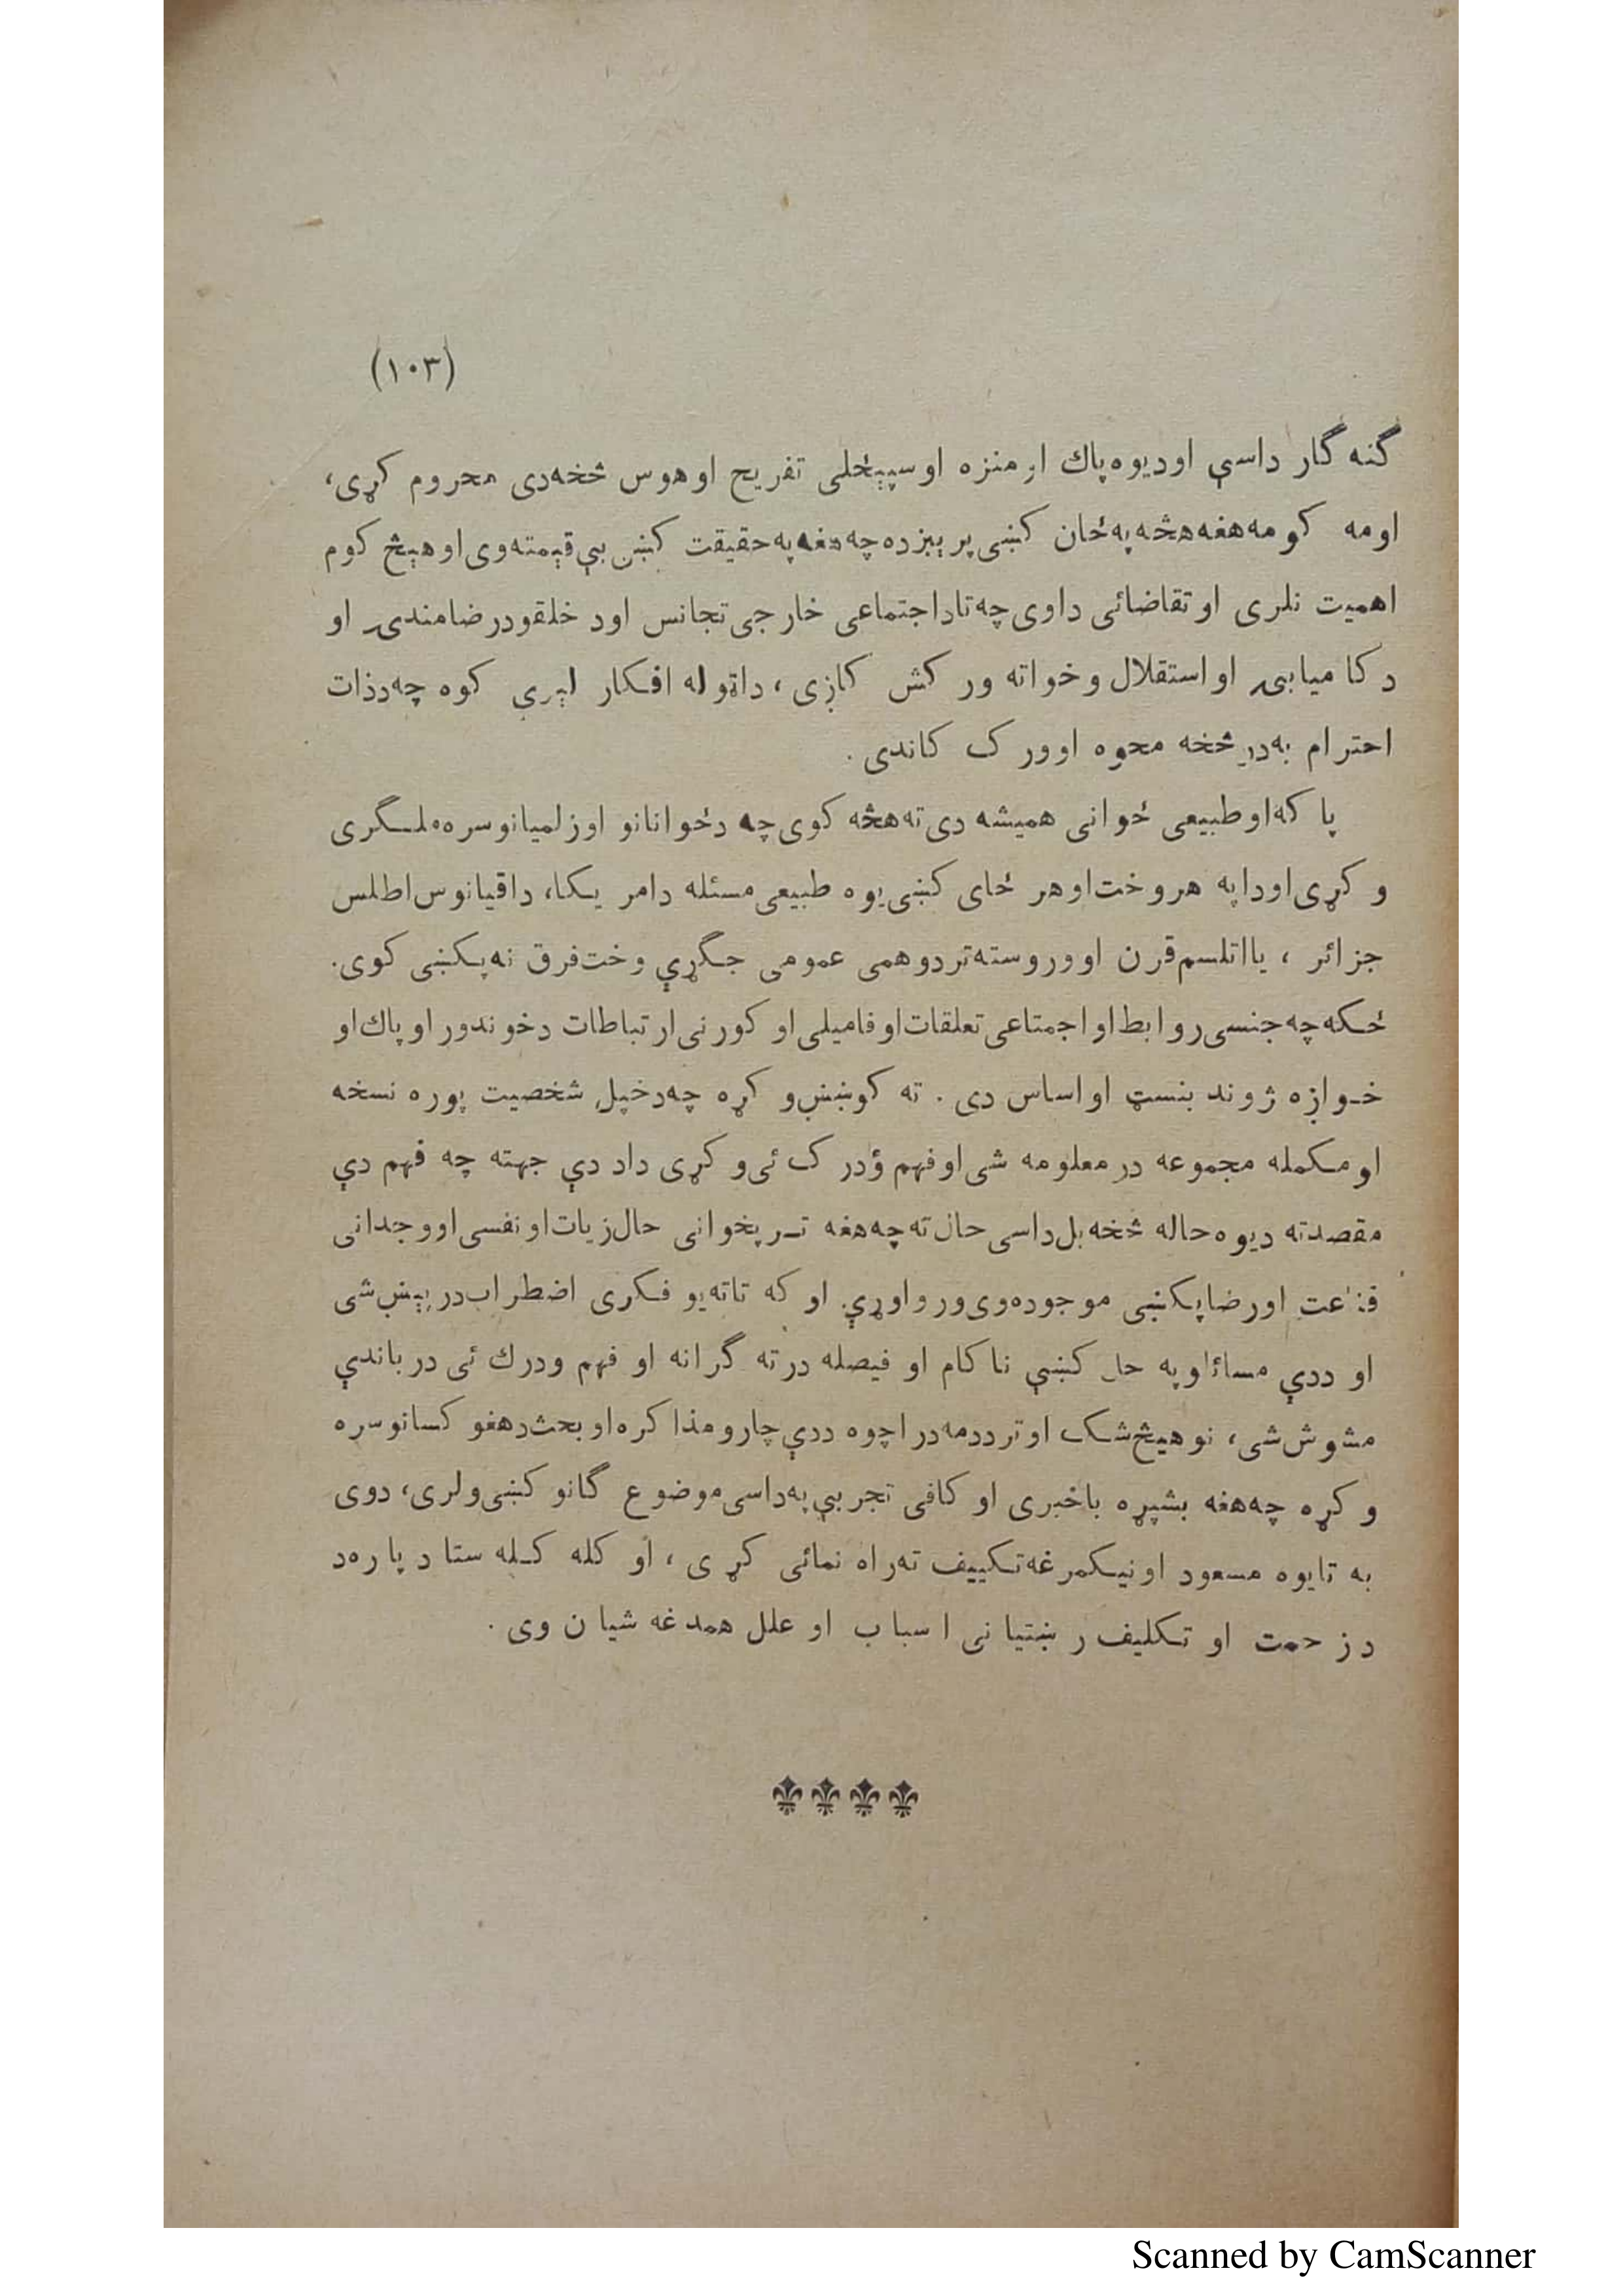 (۱۰۳)
گنه گار داسې اودیوه پاك او منزه او سپېڅلی تفریح او هوس څخه دی محروم کړی،
اومه کومه هغه هڅه په ځان کښی پرېږده چه هغه په حقیقت کښې بې قېمته وی او هېڅ کوم
اهمیت نلری او تقاضائی داوی چه تاداجتماعی خارجی تجانس اود خلقودرضامندۍ او
د کامیابۍ او استقلال وخواته ور کش کاږی، داټوله افکار لېرې کوه چه دذات
احترام به در څخه محوه اوورک کاندی.
پا که اوطبیعی ځوانی همیشه دی ته هڅه کوی چه دځوانانو اوزلمیانوسره ملـگری
و کړی اودا په هروخت اوهر ځای کښی یوه طبیعی مسئله دامر یـکا، داقیانوس اطلس
جزائر ، یااتلسم قرن اووروسته تردوهمی عمومی جـگړې وخت فرق نه پـکښی کوی.
ځـکه چه جنسی روابط او اجمتاعی تعلقات او فامیلی او کورنی ارتباطات دخوندور او پاك او
خـواږه ژوند بنسټ او اساس دی . ته کوښښ و کړه چه دخپل شخصیت پوره نسخه
او مـکمله مجموعه در معلومه شی او فهم ؤدرک ئی و کړی داد دې جهته چه فهم دې
مقصدته دیوه حاله څخه بل داسی حال ته چه هغه تـر پخوانی حال زیات او نفسی اووجدانی
قناعت اورضاپکښی موجوده وی ور واوړې. او که تاته یو فـکری اضطراب در پېښ شی
او ددې مسائلو په حل کښې نا کام او فیصله در ته گرانه او فهم ودرك ئی در باندې
مشوش شی، نو هیڅ شـک او تردد مه در اچوه ددې چارو مذا کره او بحث دهغو کسانوسره
و کړه چه هغه بشپړه باخبری او کافی تجربې په داسی موضوع گانو کښی ولری، دوی
به تایوه مسعود اونیـکمرغه تـکییف ته راه نمائی کړی ، او کله کـله ستا د پا ره د
د ز حمت او تـکلیف ر ښتیا نی ا سبا ب او علل همد غه شیا ن وی .
Scanned by CamScanner